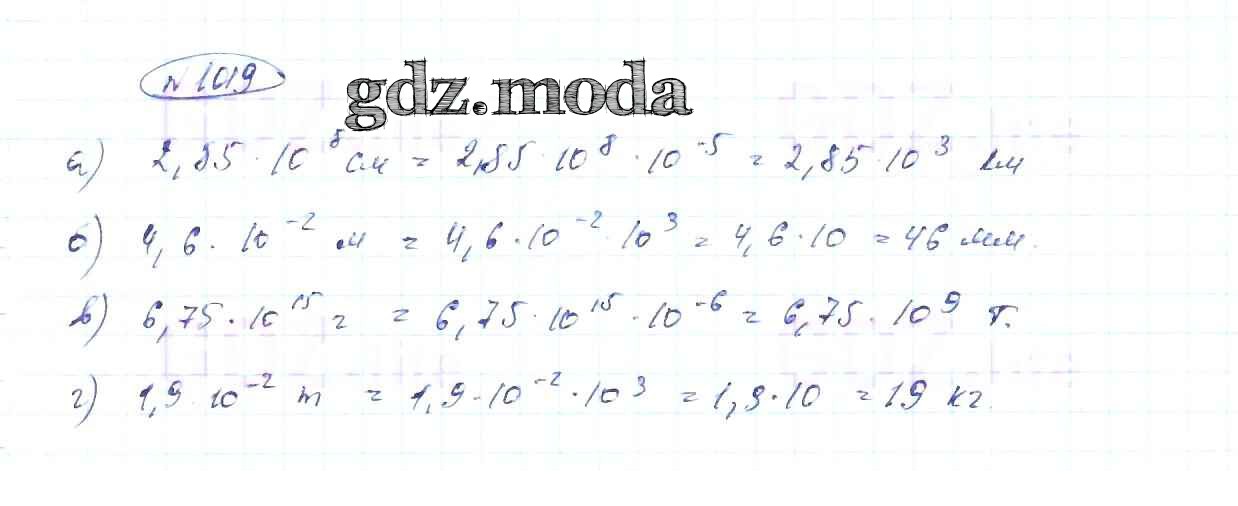 № 1019
gdz.moda
а) 2,85 · 10⁸ см = 2,85 · 10⁸ · 10⁻⁵ = 2,85 · 10³ км
б) 4,6 · 10⁻² м = 4,6 · 10⁻² · 10³ = 4,6 · 10 = 46 мм.
в) 6,75 · 10¹⁵ г = 6,75 · 10¹⁵ · 10⁻⁶ = 6,75 · 10⁹ т.
г) 1,9 · 10⁻² т = 1,9 · 10⁻² · 10³ = 1,9 · 10 = 19 кг.